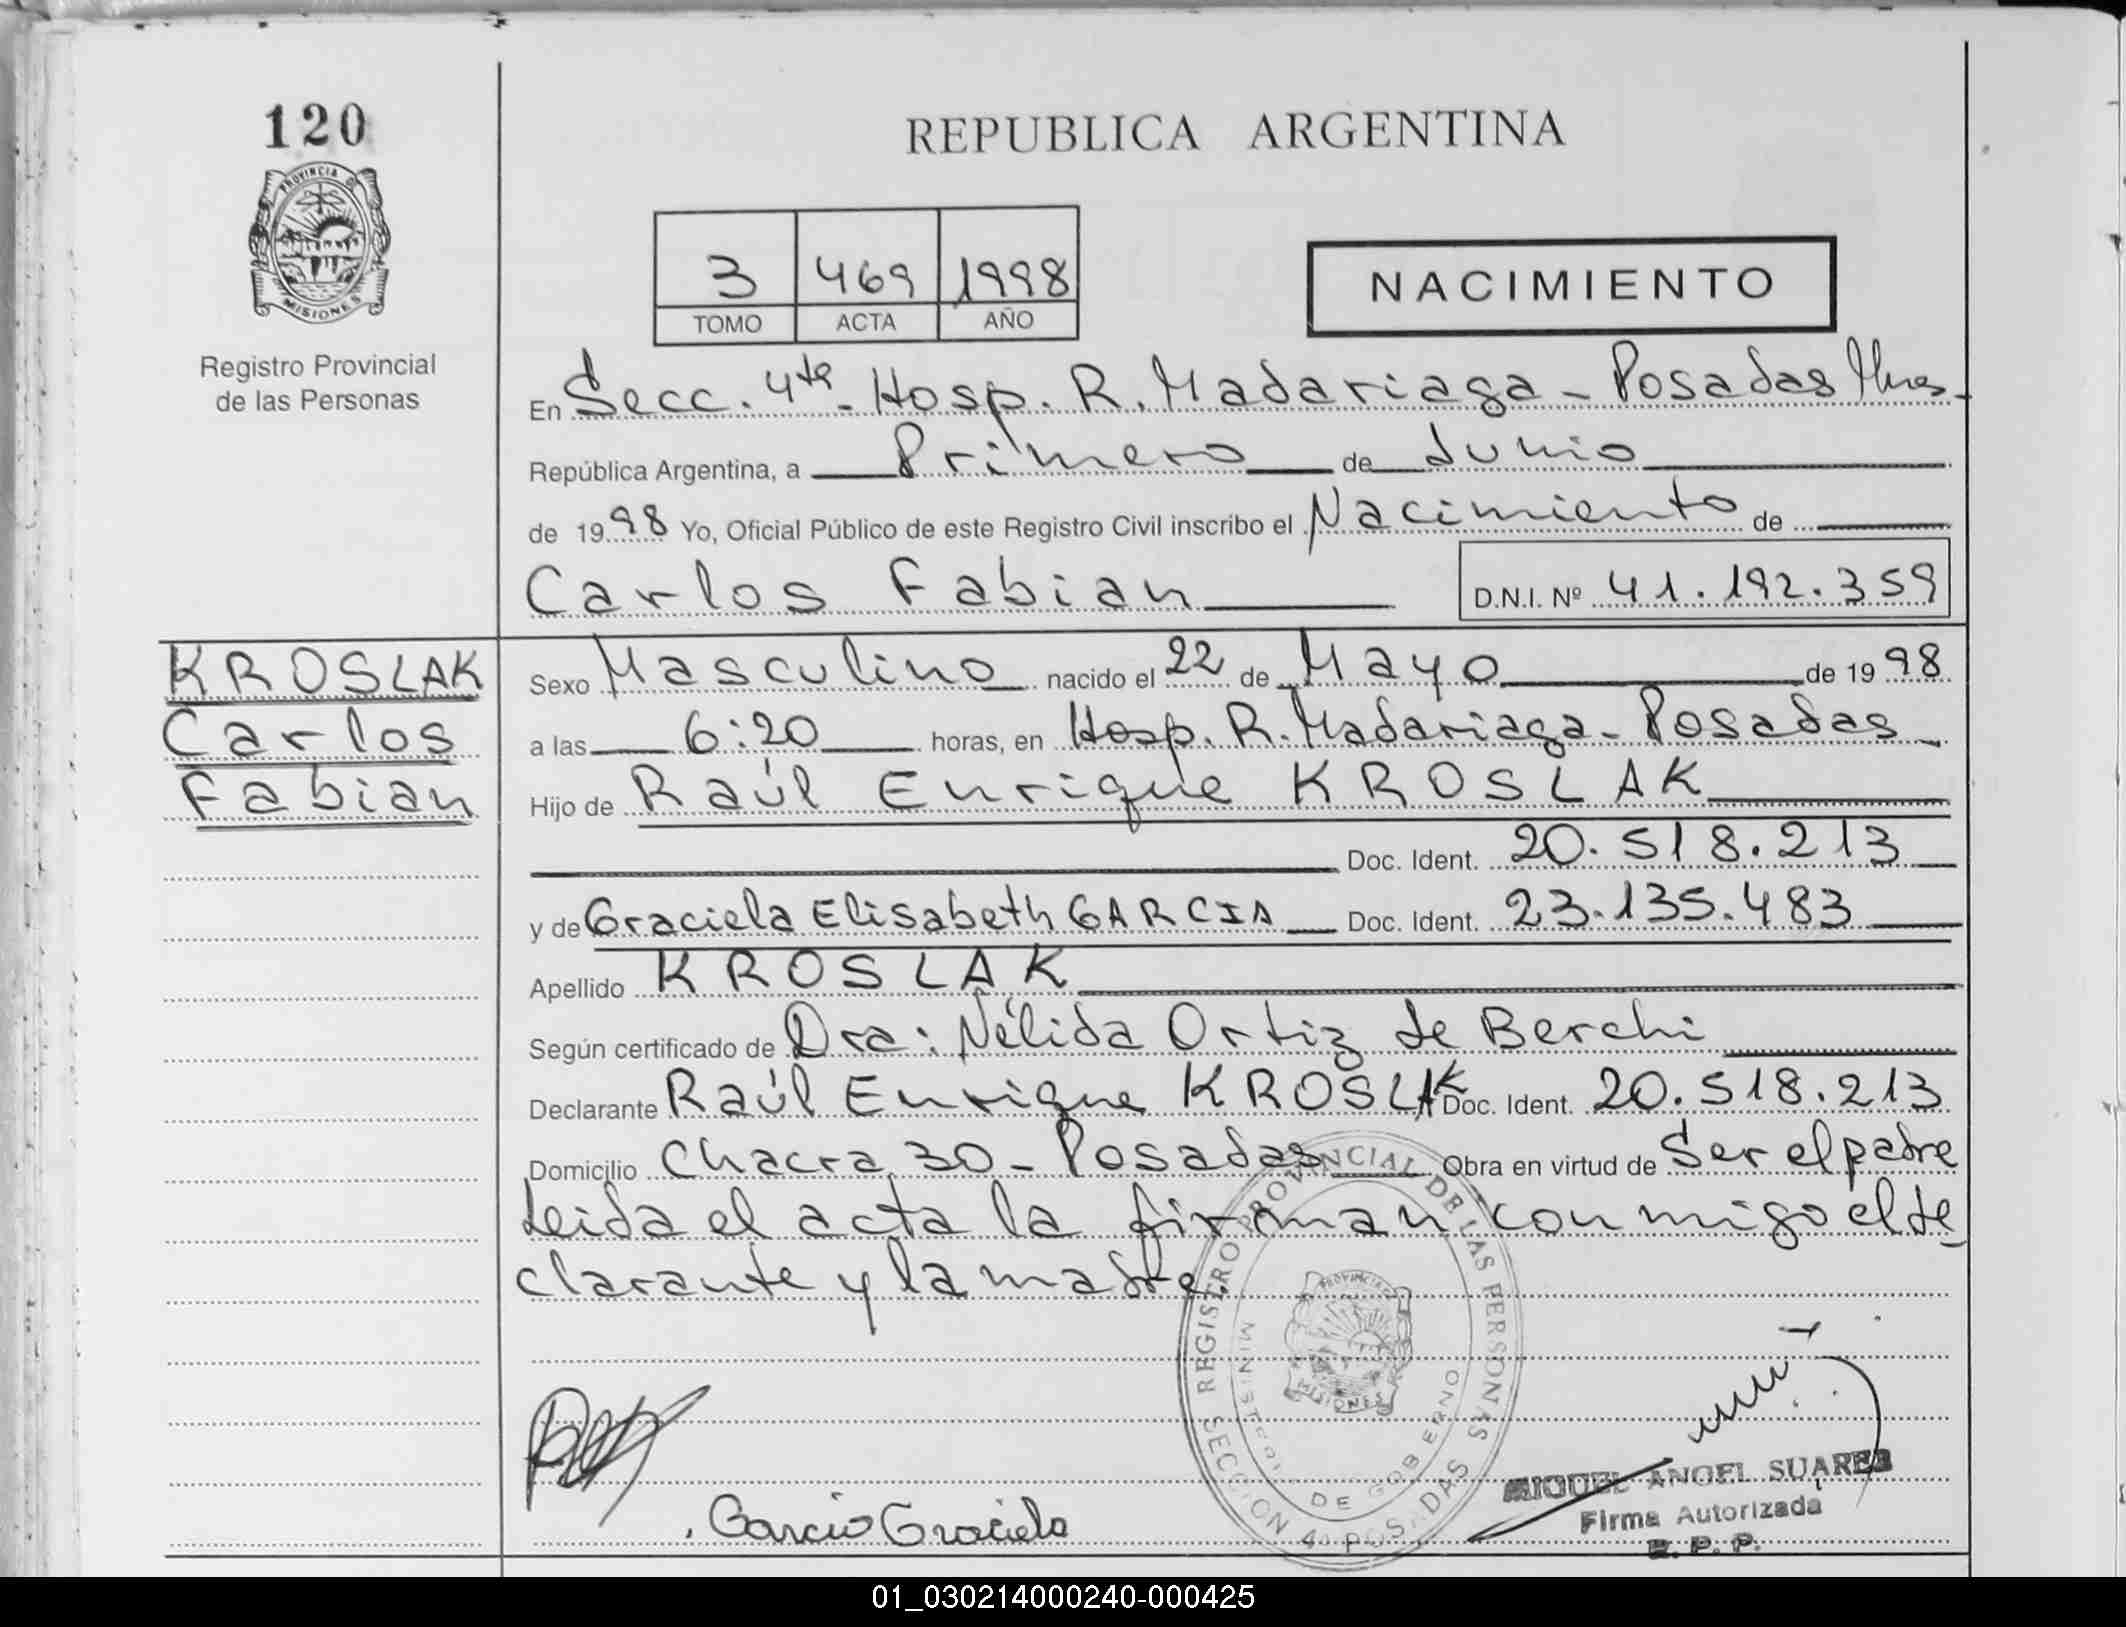 120
PROVINCIA D
MISIONES
Registro Provincial
de las Personas
REPUBLICA ARGENTINA
3 469 1998
TOMO ACTA AÑO
NACIMIENTO
En Secc. 4ta - Hosp. R. Madariaga - Posadas Mnes -
República Argentina, a Primero de Junio
de 1998 Yo, Oficial Público de este Registro Civil inscribo el Nacimiento de
Carlos Fabian D.N.I. Nº 41.192.359
KROSLAK
Carlos
Fabian
Sexo Masculino nacido el 22 de Mayo de 1998
a las 6:20 horas, en Hosp. R. Madariaga - Posadas -
Hijo de Raúl Enrique KROSLAK
Doc. Ident. 20.518.213
y de Graciela Elisabeth GARCIA Doc. Ident. 23.135.483
Apellido KROSLAK
Según certificado de Dra: Nélida Ortiz de Berchi
Declarante Raúl Enrique KROSLAK Doc. Ident. 20.518.213
Domicilio Chacra 30 - Posadas Obra en virtud de Ser el padre
Leida el acta la firman conmigo el de
clarante y la madre.
REGISTRO PROVINCIAL DE LAS PERSONAS
SECCION 4a POSADAS
MINISTERIO DE GOBIERNO
PROVINCIA
MISIONES
Garcia Graciela
MIGUEL ANGEL SUAREZ
Firma Autorizada
R. P. P.
01_030214000240-000425